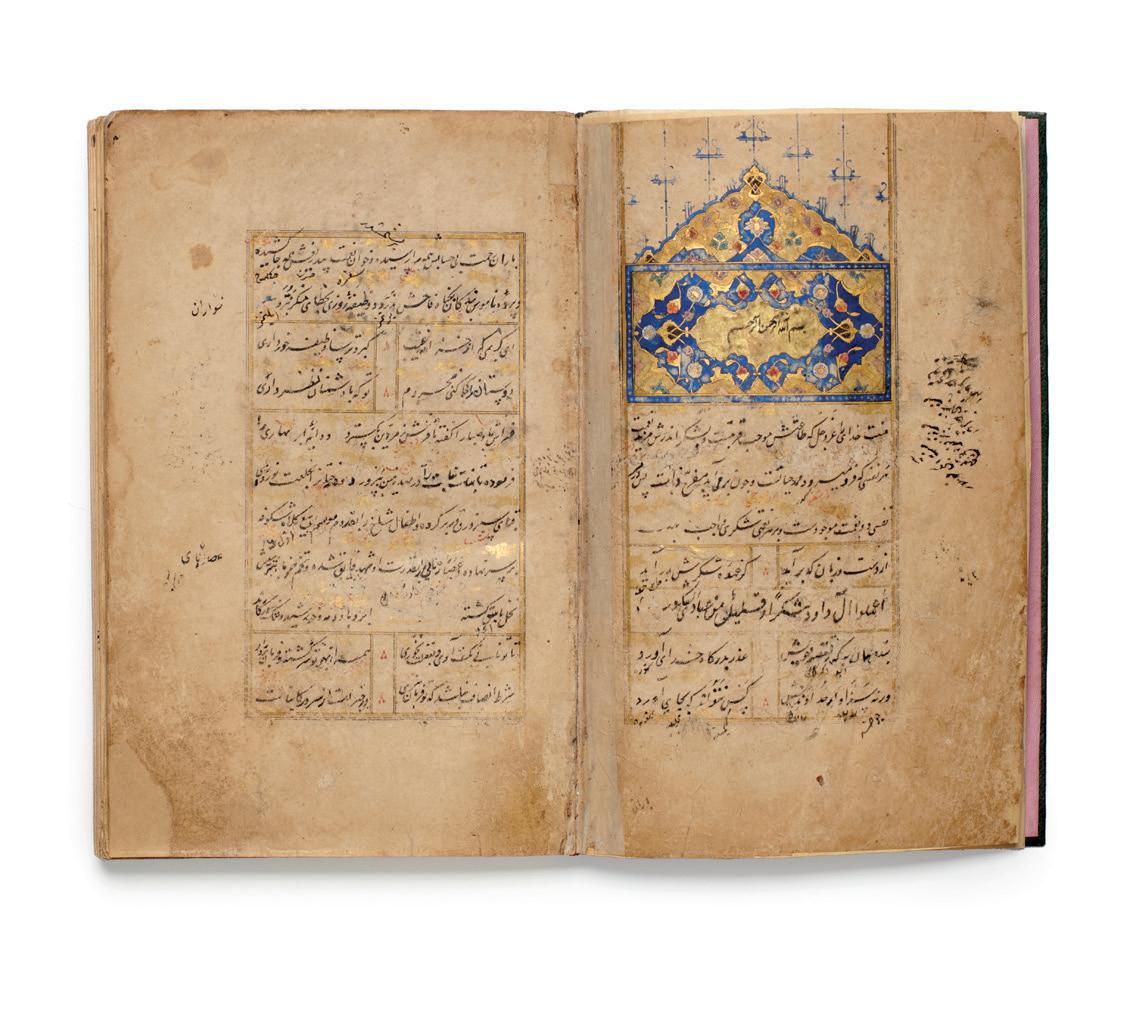 بسم الله الرحمن الرحیم
منت خدای را عز و جل که طاعتش موجب قربتست و بشکر اندرش مزید نعمت
هر نفسی که فرو میرود ممد حیاتست و چون برمی آید مفرح ذات پس در هر
نفسی دو نعمت موجودست و بر هر نعمتی شکری واجب بیت
از دست و زبان که برآید کز عهده شکرش بدر آید
اعملوا آل داود شکرا و قلیل من عبادی الشکور
بنده همان به که ز تقصیر خویش عذر بدرگاه خدای آورد
ورنه سزاوار خداوندیش کس نتواند که بجای آورد
باران رحمت بی حسابش همه را رسیده و خوان نعمت بیدریغش همه جا کشیده
پرده ناموس بندگان بگناه فاحش ندرد و وظیفه روزی بخطای منکر نبرد
ای کریمی که از خزانه غیب گبر و ترسا وظیفه خور داری
دوستان را کجا کنی محروم تو که با دشمنان نظر داری
فراش باد صبا را گفته تا فرش زمردین بگسترد و دایه ابر بهاری را
فرموده تا بنات نبات را در مهد زمین بپرورد و درختان را بخلعت نوروزی
قبای سبز ورق در بر کرده و اطفال شاخ را بقدوم موسم ربیع کلاه شکوفه
بر سر نهاده عصاره نایی بقدرت او شهد فایق شده و تخم خرما بتربیتش
نخل باسق گشته ابر و باد و مه و خورشید و فلک در کارند
تا تو نانی بکف آری و بغفلت نخوری همه از بهر تو سرگشته و فرمان بردار
شرط انصاف نباشد که تو فرمان نبری در خبرست از سرور کاینات